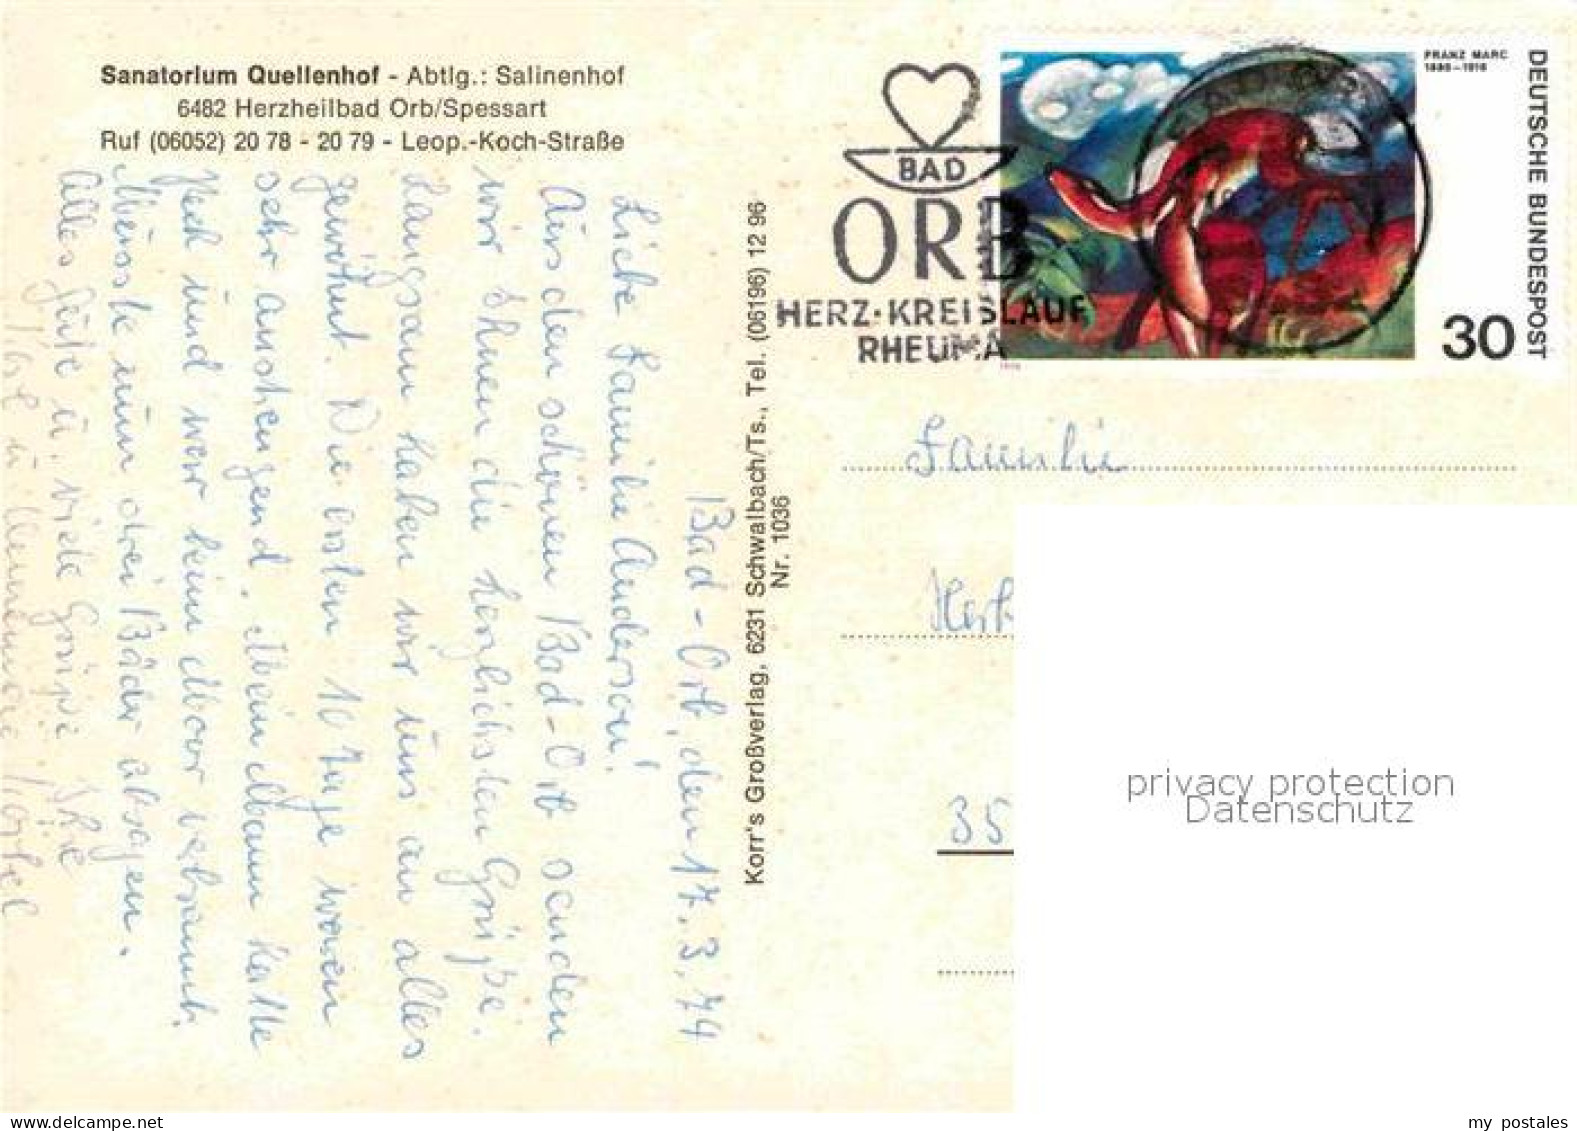 Sanatorium Quellenhof - Abtlg.: Salinenhof
6482 Herzheilbad Orb/Spessart
Ruf (06052) 20 78 - 20 79 - Leop.-Koch-Straße
Bad-Orb, den 17.3.74
Liebe Familie Andersen!
Aus dem schönen Bad-Orb senden
wir Ihnen die herzlichsten Grüße.
Langsam haben wir uns an alles
gewöhnt. Die ersten 10 Tage waren
sehr anstrengend. Mein Mann hatte
Pech und war kein Moor
Musste nun drei Bäder absagen.
Alles Gute u. viele Grüße Ihre
Korr's Großverlag, 6231 Schwalbach/Ts., Tel. (06196) 12 96
Nr. 1036
BAD
ORB
HERZ·KREISLAUF
RHEUMA
FRANZ MARC
1880–1916
DEUTSCHE BUNDESPOST
30
Familie
35
privacy protection
Datenschutz
www.delcampe.net
my_postales